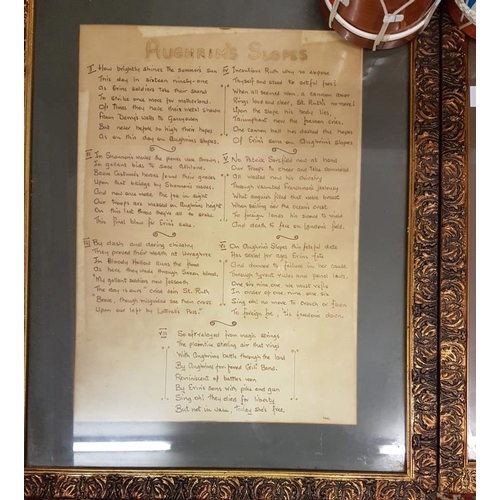 AUGHRIM'S SLOPES
I. How brightly shines the summer's sun
This day in sixteen ninety-one
As Erin's soldiers take their stand
To strike once more for motherland.
Of times they have their metal shown
From Derry's walls to
But never hopes so high their hopes
As on this day on Aughrim's slopes.
II In Shannon's waves the pennons were thrown,
In gallant bids to save Athlone.
Brave Custume's heroes found their graves
Upon that bridge by Shannon's waves.
And now once more the foe in sight
Our troops are massed on Aughrim's height
On this last throw they've all to stake.
This final blow for Erin's sake.
III By clash and daring chivalry
They proved their worth at Urraghree.
In Bloody Hollow flung the foes
As here they wade through Saxon blood,
"My gallant soldiers now forsooth
The day is ours" cries Gen St. Ruth
"Brave, though misguided see them cross
Upon our left by Luttrell's Pass."
IV Incautious Ruth why so expose
Thyself and steed to artful foes?
When all seemed won, a cannon door
Rings loud and clear, St. Ruth's no more!
Upon the slope his body lies,
Triumphant now the foemen cries.
One cannon ball has dashed the hopes
Of Erin's sons on Aughrim's slopes.
V No Patrick Sarsfield now at hand
Our troops to cheer and take command
All wasted now his chivalry
Through vaunted Frenchman's jealousy
What anguish filled that noble breast
When sailing o'er the ocean's crest
To foreign lands his sword to wield
And death to face on Landen's field.
VI On Aughrim's Slopes this fateful date
Has sealed for ages Erin's fate
And doomed to failure in her cause
Through tyrant rules and penal laws.
One six nine one we must refix
In order of one, nine, one, six
Sing oh! no more to crouch or fawn
To foreign foe, 'tis freedom's dawn.
VII So oft relayed from magic strings
The plaintive stirring air that rings
With Aughrim's battle through the land
By Aughrim's far-famed Céilí Band.
Reminiscent of battles won
By Erin's sons with pike and gun
Sing oh! They died for liberty
But not in vain, today she's free.